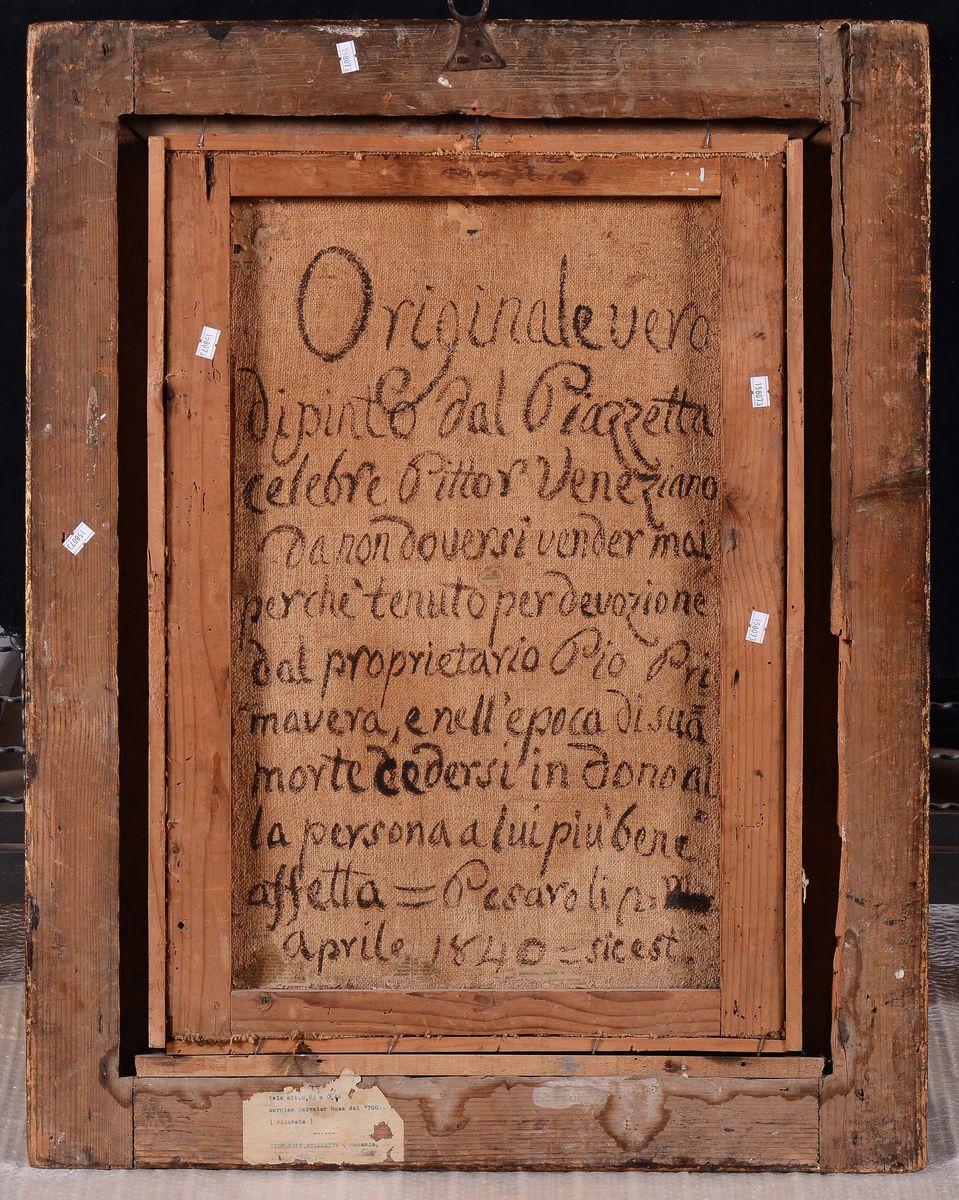 158073
Originale vero
dipinto dal Piazzetta
celebre Pittor Veneziano
da non doversi vender mai
perchè tenuto per devozione
dal proprietario Pio Pri
mavera, e nell'epoca di sua
morte cedersi in dono al
la persona a lui più bene
affetta = Pesaro li
Aprile 1840 = sic est.
158073
158073
158073
158073
tela alt.0,63 x
cornice Salvator Rosa del '700
( ridorata )